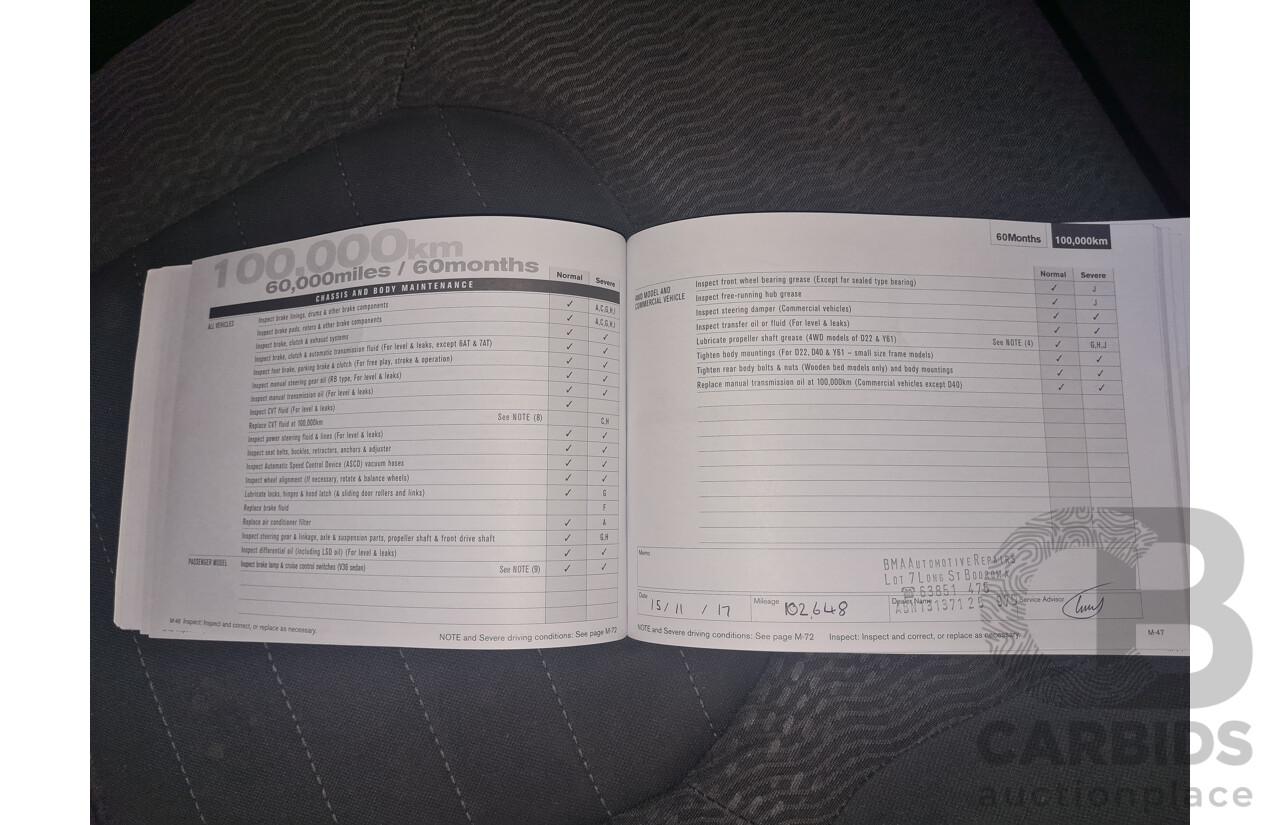 100,000km
60,000miles / 60months
Normal Severe
CHASSIS AND BODY MAINTENANCE
ALL VEHICLES
Inspect brake linings, drums & other brake components ✓ A,C,G,H,J
Inspect brake pads, rotors & other brake components ✓ A,C,G,H,J
Inspect brake, clutch & exhaust systems ✓ ✓
Inspect brake, clutch & automatic transmission fluid (For level & leaks, except 6AT & 7AT) ✓ ✓
Inspect foot brake, parking brake & clutch (For free play, stroke & operation) ✓ ✓
Inspect manual steering gear oil (RB type, For level & leaks) ✓ ✓
Inspect manual transmission oil (For level & leaks) ✓ ✓
Inspect CVT fluid (For level & leaks) ✓
Replace CVT fluid at 100,000km See NOTE (8) C,H
Inspect power steering fluid & lines (For level & leaks) ✓ ✓
Inspect seat belts, buckles, retractors, anchors & adjuster ✓ ✓
Inspect Automatic Speed Control Device (ASCD) vacuum hoses ✓ ✓
Inspect wheel alignment (If necessary, rotate & balance wheels) ✓ ✓
Lubricate locks, hinges & hood latch (& sliding door rollers and links) ✓ G
Replace brake fluid F
Replace air conditioner filter ✓ A
Inspect steering gear & linkage, axle & suspension parts, propeller shaft & front drive shaft ✓ G,H
Inspect differential oil (including LSD oil) (For level & leaks) ✓ ✓
PASSENGER MODEL
Inspect brake lamp & cruise control switches (V36 sedan) See NOTE (9) ✓ ✓
M-46 Inspect: Inspect and correct, or replace as necessary.
NOTE and Severe driving conditions: See page M-72
60Months 100,000km
Normal Severe
4WD MODEL AND
COMMERCIAL VEHICLE
Inspect front wheel bearing grease (Except for sealed type bearing) ✓ J
Inspect free-running hub grease ✓ J
Inspect steering damper (Commercial vehicles) ✓ ✓
Inspect transfer oil or fluid (For level & leaks) ✓ ✓
Lubricate propeller shaft grease (4WD models of D22 & Y61) See NOTE (4) ✓ G,H,J
Tighten body mountings (For D22, D40 & Y61 – small size frame models) ✓ ✓
Tighten rear body bolts & nuts (Wooden bed models only) and body mountings ✓ ✓
Replace manual transmission oil at 100,000km (Commercial vehicles except D40) ✓ ✓
Memo
BMA AUTOMOTIVE REPAIRS
LOT 7 LONG ST BOOROWA
☎ 63851 475
Date 15 / 11 / 17 Mileage 102,648 Dealer Name Service Advisor
NOTE and Severe driving conditions: See page M-72 Inspect: Inspect and correct, or replace as necessary.
M-47
CARBIDS
auctionplace